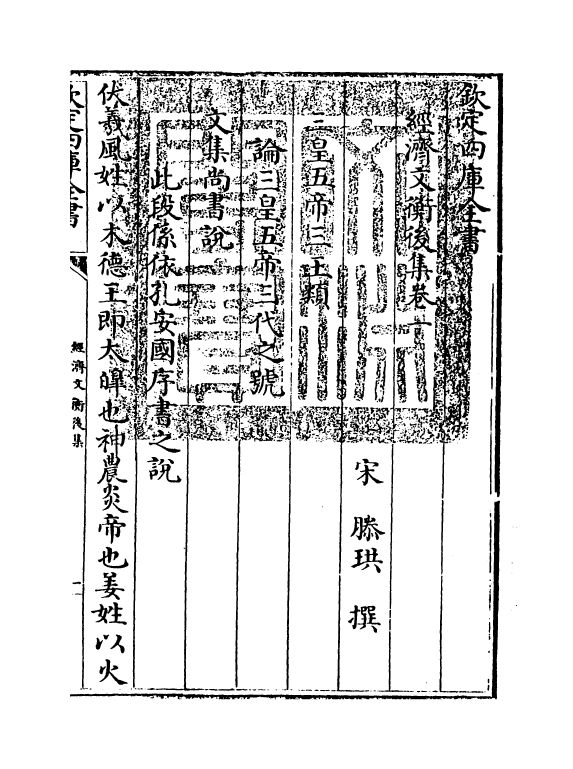 欽定四庫全書
經濟文衡後集卷一
宋 滕珙 撰
三皇五帝三王類
論三皇五帝三代之號
文集尚書說
此段係依孔安國序書之說
伏羲風姓以木德王即太皥也神農炎帝也姜姓以火
欽定四庫全書
經濟文衡後集